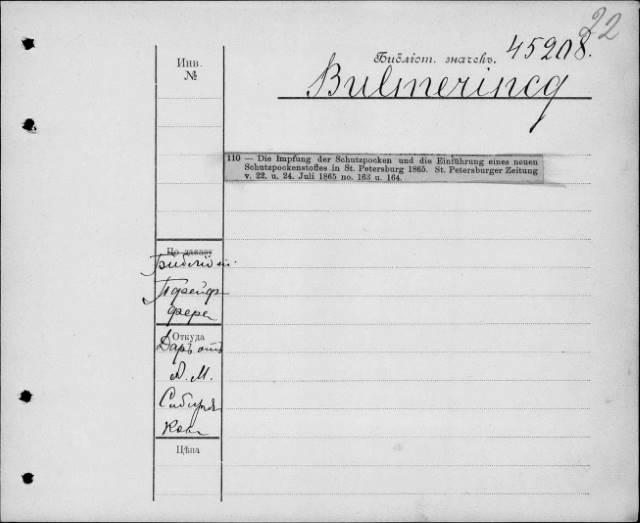 22
Инв.
№
Библіот. значекъ. 45208.
Bulmerincq
110 — Die Impfung der Schutzpocken und die Einführung eines neuen
Schutzpockenstoffes in St. Petersburg 1865. St. Petersburger Zeitung
v. 22. u. 24. Juli 1865 no. 163 u. 164.
По заказу
Библіот.
Пфейф
фера
Откуда
Даръ отъ
А. М.
Сибиря
кова
Цѣна